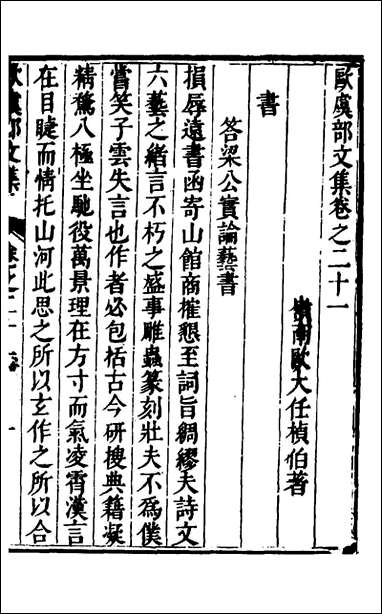 歐虞部文集卷之二十一
嶺南歐大任楨伯著
書
答梁公實論藝書
損辱遠書函寄山館商搉懇至詞旨綢繆夫詩文
六藝之緒言不朽之盛事雕蟲篆刻壯夫不為僕
嘗笑子雲失言也作者必包括古今研搜典籍凝
精騖八極坐馳役萬景理在方寸而氣凌霄漢言
在目睫而情托山河此思之所以玄作之所以合
歐虞部文集